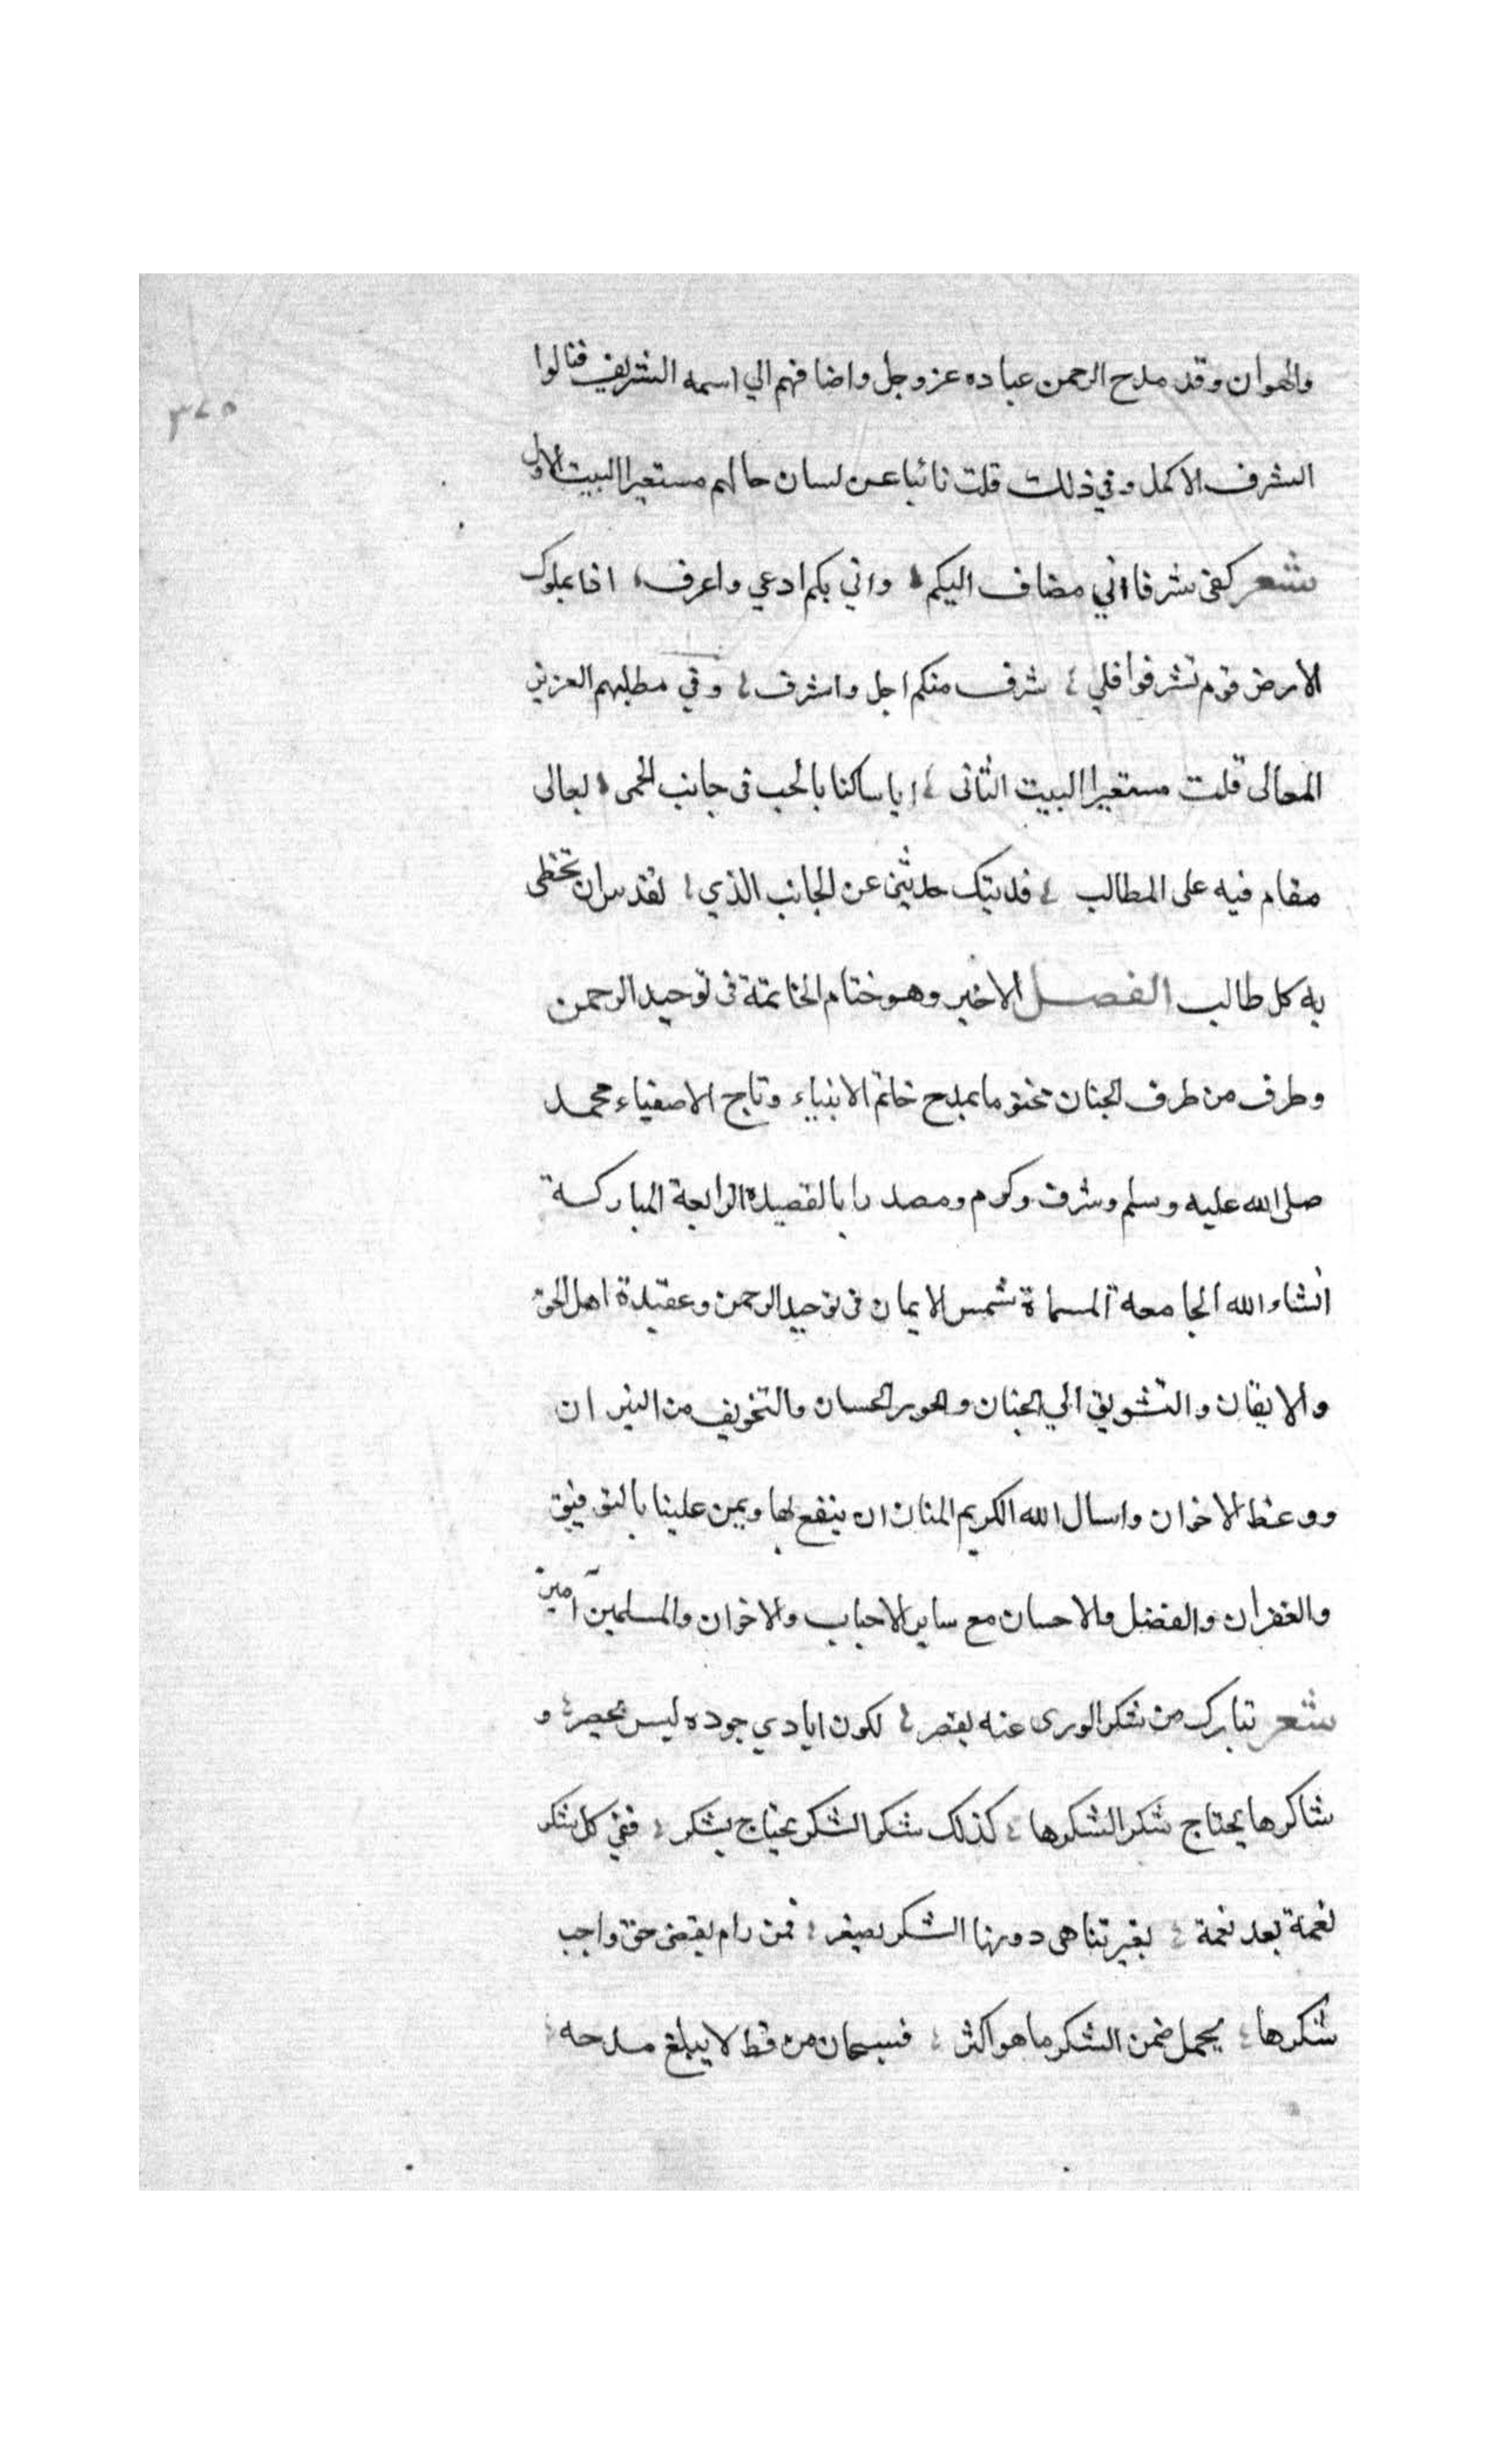 والهوان وقد مدح الرحمن عباده عز وجل واضافهم الي اسمه الشريف فنالوا
٣٤٥
الشرف الاكمل وفي ذلك قلت نائبا عن لسان حالهم مستعيرا البيت الاول
شعر كفى شرفا اني مضاف اليكم واني بكم ادعي واعرف اذا بملوك
الارض قوم تشرفوا فلي شرف منكم اجل واشرف وفي مطلبهم العزيز
المعالى قلت مستعيرا البيت الثانى ايا ساكنا بالحب فى جانب الحمى لعالى
مقام فيه على المطالب فديتك حدثني عن الجانب الذي ان تحظى
به كل طالب الفصل الاخير وهو ختام الخاتمة فى توحيد الرحمن
وطرف من طرف الجنان مختوما بمدح خاتم الانبياء وتاج الاصفياء محمد
صلى الله عليه وسلم وشرف وكرم ومصدرا بالقصيدة الرابعة المباركة
انشاء الله الجامعة المسماة شمس الايمان فى توحيد الرحمن وعقيدة اهل الحق
والايقان والتشويق الي الجنان والحور الحسان والتخويف من النيران
ووعظ الاخوان واسال الله الكريم المنان ان ينفع بها ويمن علينا بالتوفيق
والغفران والفضل والاحسان مع ساير الاحباب والاخوان والمسلمين آمين
شعر تبارك من شكر الورى عنه يقصر لكون ايادي جوده ليس تحصر و
شاكرها يحتاج شكر الشكرها كذلك شكر الشكر يحتاج يشكر ففي كل شكر
نعمة بعد نعمة بغير تناهى دونها الشكر يصغر فمن رام يقضى حق واجب
شكرها يحمل ضمن الشكر ما هو اكثر فسبحان من قط لا يبلغ مدحه